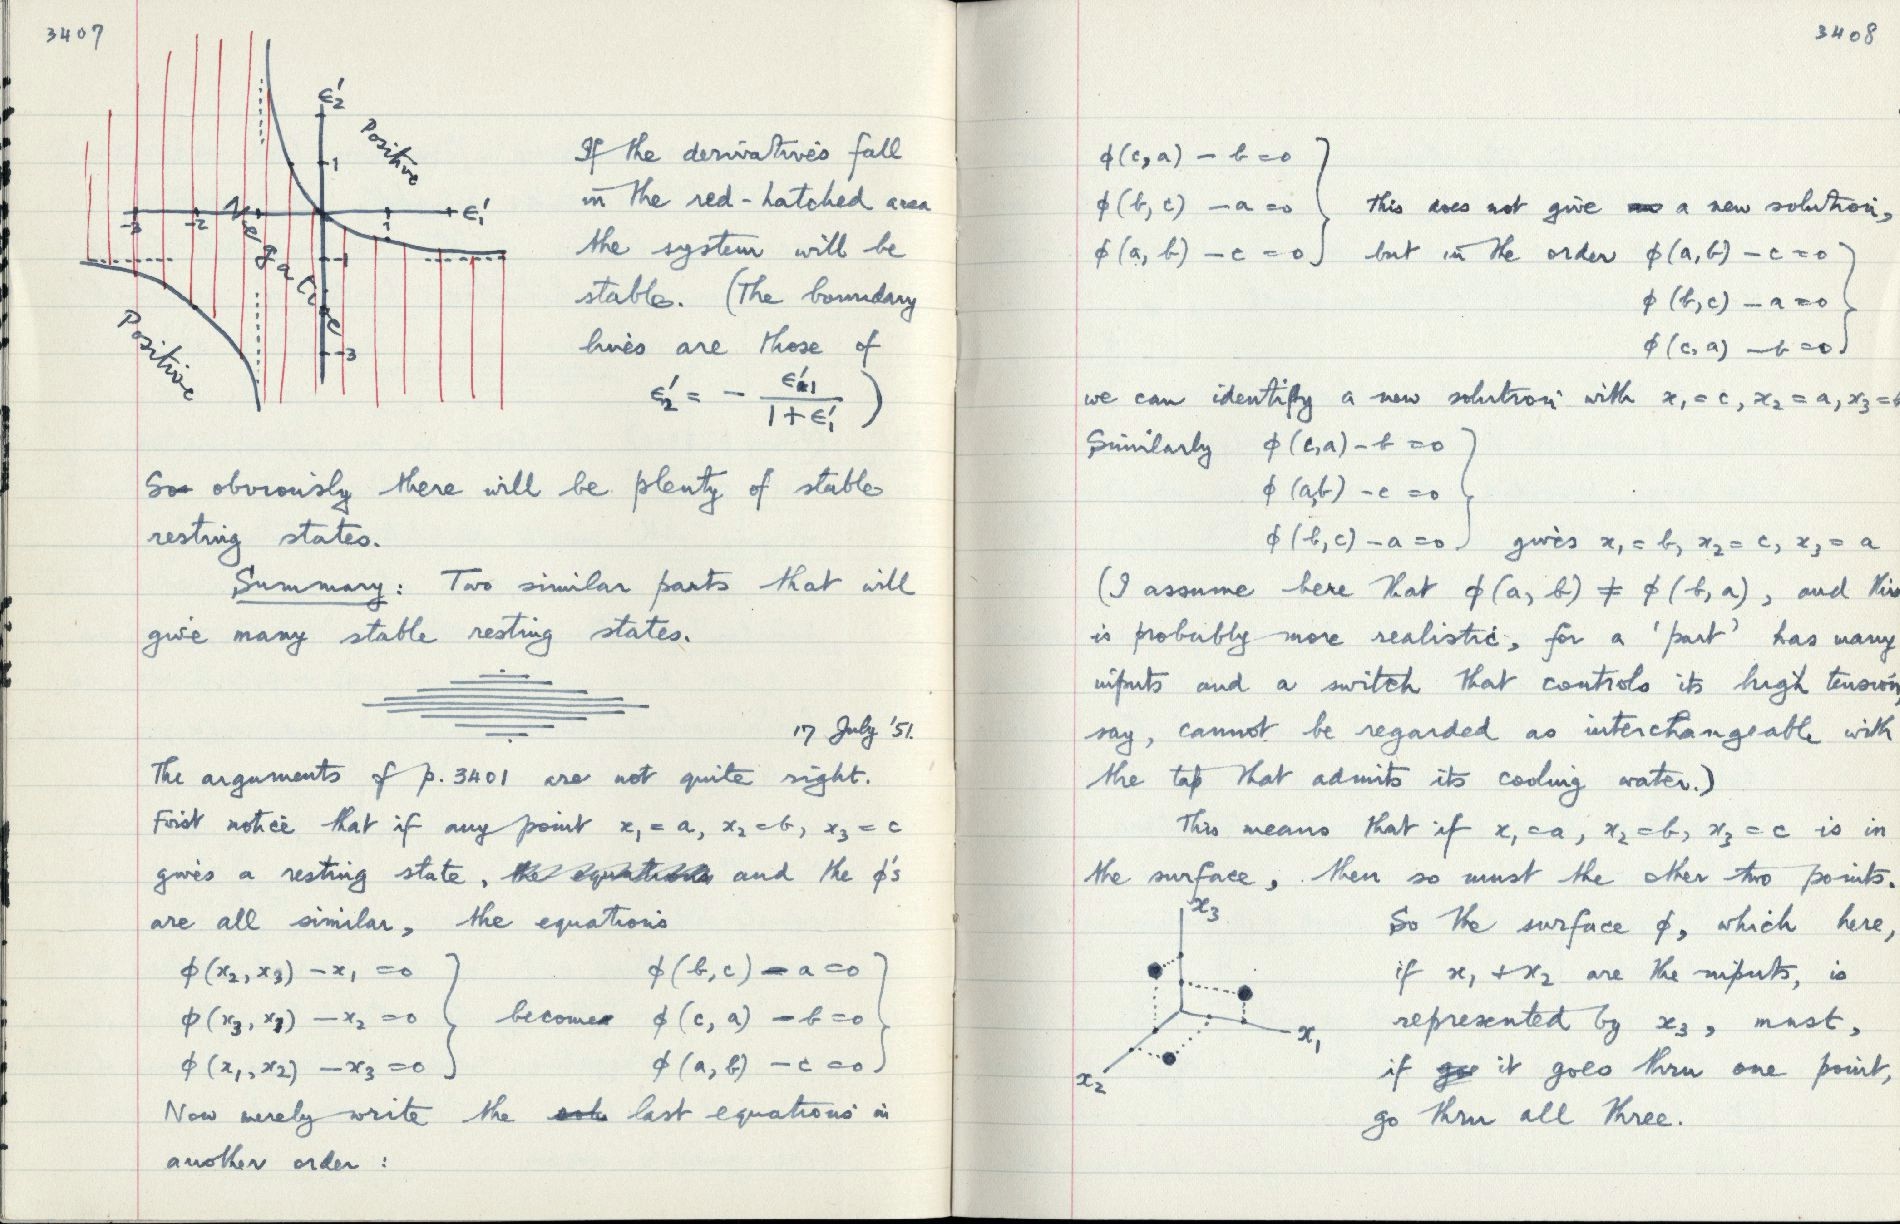 3407
ε₂'
Positive
1
ε₁'
-3
-2
1
Negative
-1
-3
Positive
If the derivatives fall
in the red-hatched area
the system will be
stable. (The boundary
lines are those of
ε₂' = - ε₁' / 1+ε₁' )
So obviously there will be plenty of stable
resting states.
Summary: Two similar parts that will
give many stable resting states.
17 July '51.
The arguments of p. 3401 are not quite right.
First notice that if any point x₁ = a, x₂ = b, x₃ = c
gives a resting state, the equations and the ϕ's
are all similar, the equations
ϕ(x₂, x₃) - x₁ = 0 ϕ(b, c) - a = 0
ϕ(x₃, x₁) - x₂ = 0 } become ϕ(c, a) - b = 0 }
ϕ(x₁, x₂) - x₃ = 0 ϕ(a, b) - c = 0
Now merely write the last equations in
another order:
3408
ϕ(c, a) - b = 0
ϕ(b, c) - a = 0 } this does not give a new solution,
ϕ(a, b) - c = 0 but in the order ϕ(a, b) - c = 0
ϕ(b, c) - a = 0 }
ϕ(c, a) - b = 0
we can identify a new solution with x₁ = c, x₂ = a, x₃ = b
Similarly ϕ(c, a) - b = 0
ϕ(a, b) - c = 0 }
ϕ(b, c) - a = 0 gives x₁ = b, x₂ = c, x₃ = a
(I assume here that ϕ(a, b) ≠ ϕ(b, a), and this
is probably more realistic, for a 'part' has many
inputs and a switch that controls its high tension,
say, cannot be regarded as interchangeable with
the tap that admits its cooling water.)
This means that if x₁ = a, x₂ = b, x₃ = c is in
the surface, then so must the other two points.
x₃
x₁
x₂
So the surface ϕ, which here,
if x₁ + x₂ are the inputs, is
represented by x₃, must,
if it goes thru one point,
go thru all three.